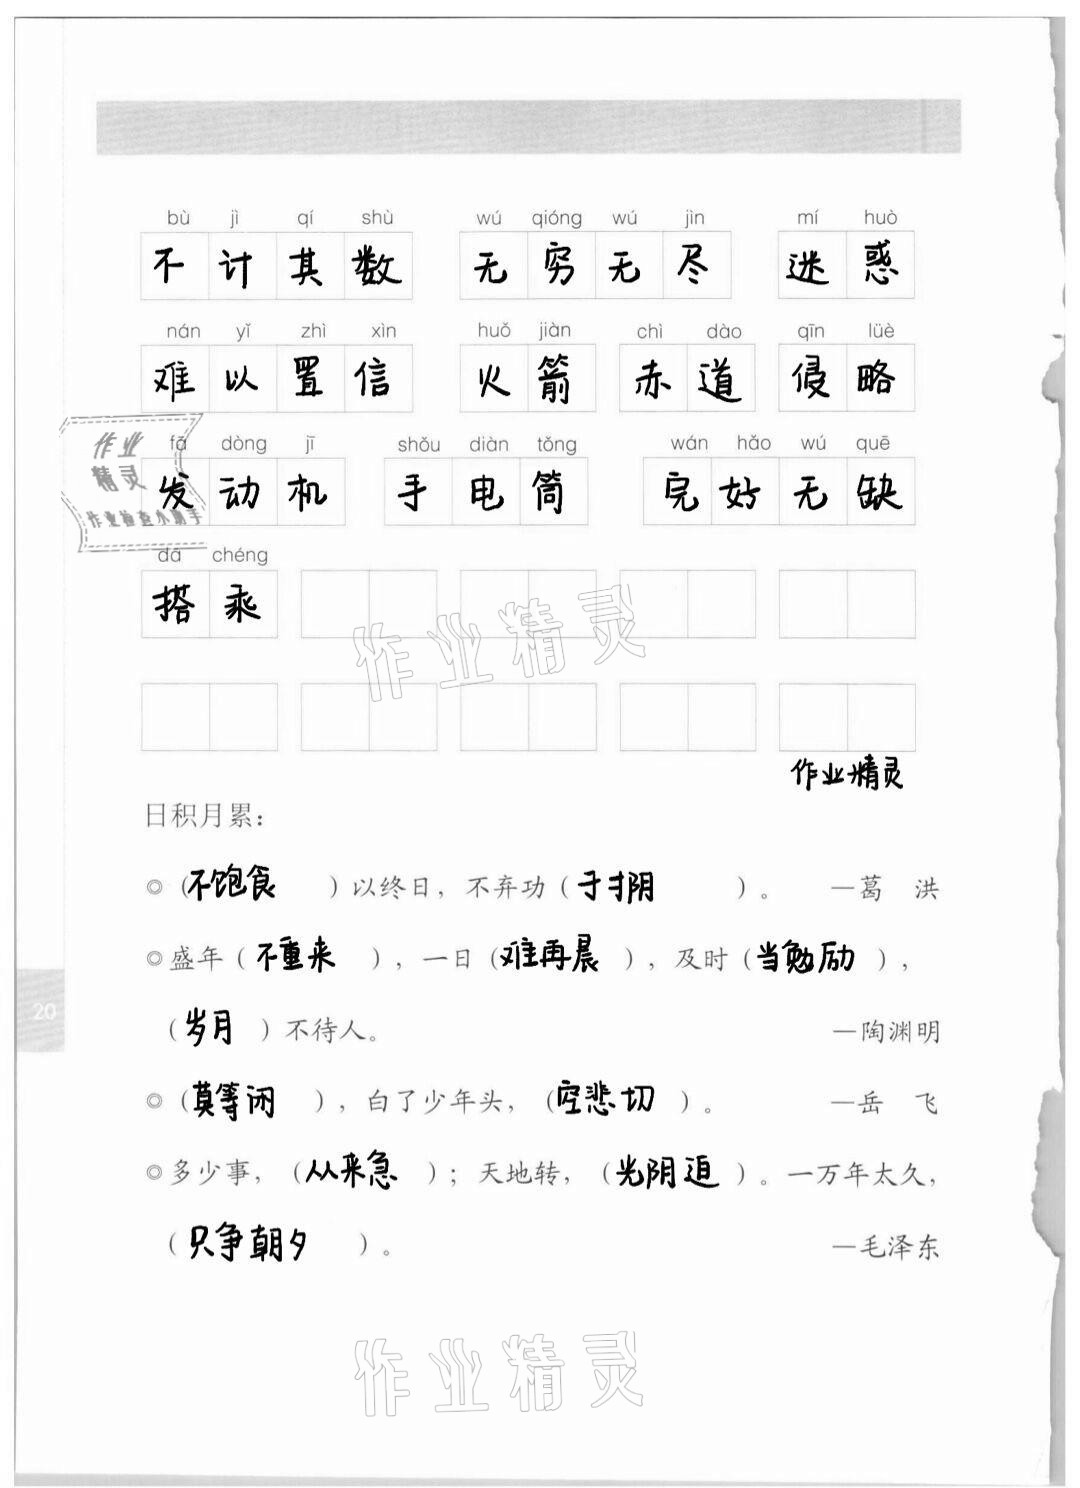 bù jì qí shù wú qióng wú jìn mí huò
不计其数 无穷无尽 迷惑
nán yǐ zhì xìn huǒ jiàn chì dào qīn lüè
难以置信 火箭 赤道 侵略
fā dòng jī shǒu diàn tǒng wán hǎo wú quē
发动机 手电筒 完好无缺
作业
精灵
作业检查小助手
dā chéng
搭乘
作业精灵
作业精灵
日积月累：
◎（不饱食）以终日，不弃功（于寸阴）。 —葛 洪
◎盛年（不重来），一日（难再晨），及时（当勉励），
（岁月）不待人。 —陶渊明
20
◎（莫等闲），白了少年头，（空悲切）。 —岳 飞
◎多少事，（从来急）；天地转，（光阴迫）。一万年太久，
（只争朝夕）。 —毛泽东
作业精灵